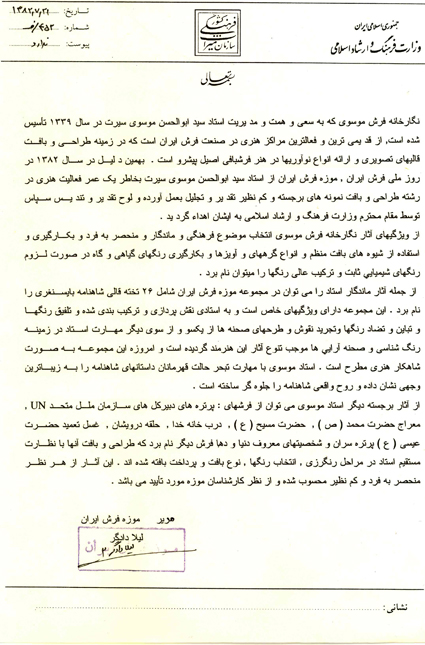 جمهوری اسلامی ایران
وزارت فرهنگ و ارشاد اسلامی
سازمان میراث فرهنگی کشور
تاریخ: ۱۳۸۲,۷,۲۱
شماره:
پیوست: ندارد
بسمه تعالی
نگارخانه فرش موسوی که به سعی و همت و مدیریت استاد سید ابوالحسن موسوی سیرت در سال ۱۳۳۹ تأسیس
شده است, از قدیمی ترین و فعالترین مراکز هنری در صنعت فرش ایران است که در زمینه طراحی و بافت
قالیهای تصویری و ارائه انواع نوآوریها در هنر فرشبافی اصیل پیشرو است . بهمین دلیل در سال ۱۳۸۲ در
روز ملی فرش ایران , موزه فرش ایران از استاد سید ابوالحسن موسوی سیرت بخاطر یک عمر فعالیت هنری در
رشته طراحی و بافت نمونه های برجسته و کم نظیر تقدیر و تجلیل بعمل آورده و لوح تقدیر و تندیس سپاس
توسط مقام محترم وزارت فرهنگ و ارشاد اسلامی به ایشان اهداء گردید .
از ویژگیهای آثار نگارخانه فرش موسوی انتخاب موضوع فرهنگی و ماندگار و منحصر به فرد و بکارگیری و
استفاده از شیوه های بافت منظم و انواع گرههای و آویزها و بکارگیری رنگهای گیاهی و گاه در صورت لزوم
رنگهای شیمیایی ثابت و ترکیب عالی رنگها را میتوان نام برد .
از جمله آثار ماندگار استاد را می توان در مجموعه موزه فرش ایران شامل ۲۶ تخته قالی شاهنامه بایسنغری را
نام برد . این مجموعه دارای ویژگیهای خاص است و به استادی نقش پردازی و ترکیب بندی شده و تلفیق رنگها
و تباین و تضاد رنگها وتجرید نقوش و طرحهای صحنه ها از یکسو و از سوی دیگر مهارت استاد در زمینه
رنگ شناسی و صحنه آرایی ها موجب تنوع آثار این هنرمند گردیده است و امروزه این مجموعه به صورت
شاهکار هنری مطرح است . استاد موسوی با مهارت تبحر حالت قهرمانان داستانهای شاهنامه را به زیباترین
وجهی نشان داده و روح واقعی شاهنامه را جلوه گر ساخته است .
از آثار برجسته دیگر استاد موسوی می توان از فرشهای : پرتره های دبیرکل های سازمان ملل متحد UN ,
معراج حضرت محمد ( ص ) , حضرت مسیح ( ع ) , درب خانه خدا , حلقه درویشان , غسل تعمید حضرت
عیسی ( ع ) پرتره سران و شخصیتهای معروف دنیا و دهها فرش دیگر نام برد که طراحی و بافت آنها با نظارت
مستقیم استاد در مراحل رنگرزی , انتخاب رنگها , نوع بافت و پرداخت بافته شده اند . این آثار از هر نظر
منحصر به فرد و کم نظیر محسوب شده و از نظر کارشناسان موزه مورد تأیید می باشد .
مدیر موزه فرش ایران
لیلا دادگر
نشانی :